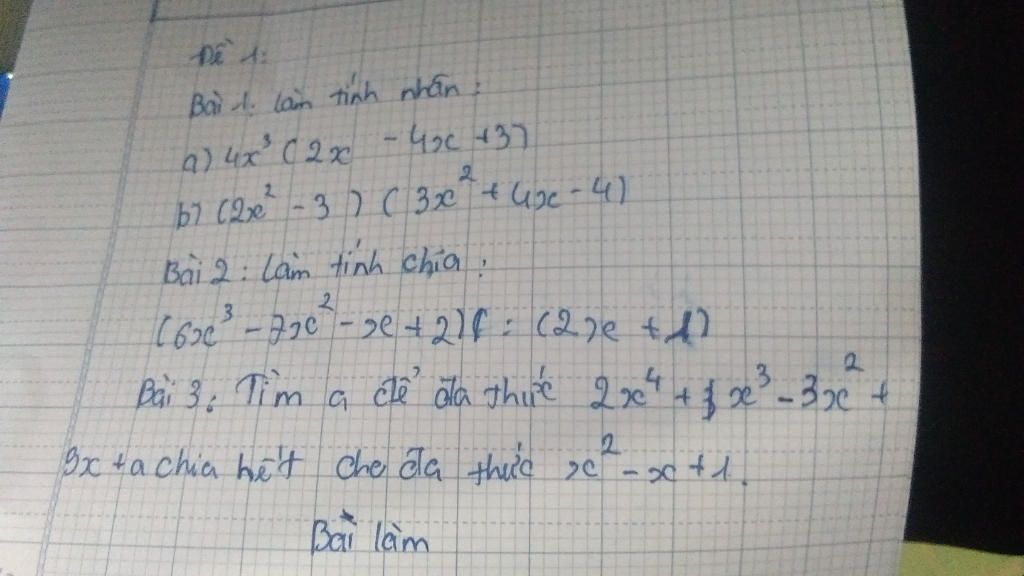 Đề 1:
Bài 1. Làm tính nhân:
a) 4x³ (2x - 4x + 3)
b) (2x² - 3) (3x² + 4x - 4)
Bài 2: Làm tính chia:
(6x³ - 7x² - x + 2) : (2x + 1)
Bài 3: Tìm a để đa thức 2x⁴ + x³ - 3x² +
x + a chia hết cho đa thức x² - x + 1.
Bài làm